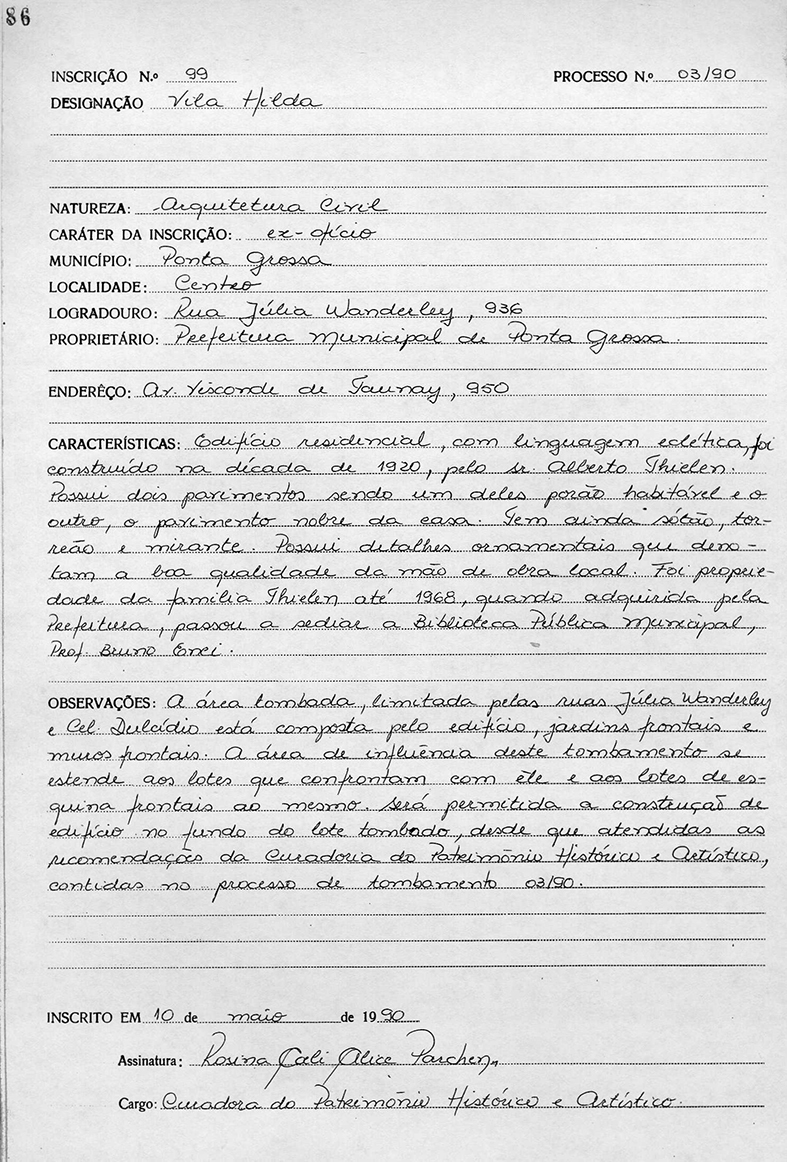 86
INSCRIÇÃO N.º 99 PROCESSO N.º 03/90
DESIGNAÇÃO Vila Hilda
NATUREZA: Arquitetura Civil
CARÁTER DA INSCRIÇÃO: ex-ofício
MUNICÍPIO: Ponta Grossa
LOCALIDADE: Centro
LOGRADOURO: Rua Júlia Wanderley, 936
PROPRIETÁRIO: Prefeitura Municipal de Ponta Grossa.
ENDERÊÇO: Av. Visconde de Taunay, 950
CARACTERÍSTICAS: Edifício residencial, com linguagem eclética, foi
construído na década de 1920, pelo sr. Alberto Thielen.
Possui dois pavimentos sendo um deles porão habitável e o
outro, o pavimento nobre da casa. Tem ainda sótão, tor-
reão e mirante. Possui detalhes ornamentais que deno-
tam a boa qualidade da mão de obra local. Foi proprie-
dade da família Thielen até 1968, quando adquirida pela
Prefeitura, passou a sediar a Biblioteca Pública Municipal,
Prof. Bruno Enei.
OBSERVAÇÕES: A área tombada, limitada pelas ruas Júlia Wanderley
e Cel. Dulcídio está composta pelo edifício, jardins frontais e
muros frontais. A área de influência deste tombamento se
estende aos lotes que confrontam com êle e aos lotes de es-
quina frontais ao mesmo. Será permitida a construção de
edifício no fundo do lote tombado, desde que atendidas as
recomendações da Curadoria do Patrimônio Histórico e Artístico,
contidas no processo de tombamento 03/90.
INSCRITO EM 10 de maio de 1990
Assinatura: Rosina Coeli Alice Parchen
Cargo: Curadora do Patrimônio Histórico e Artístico.